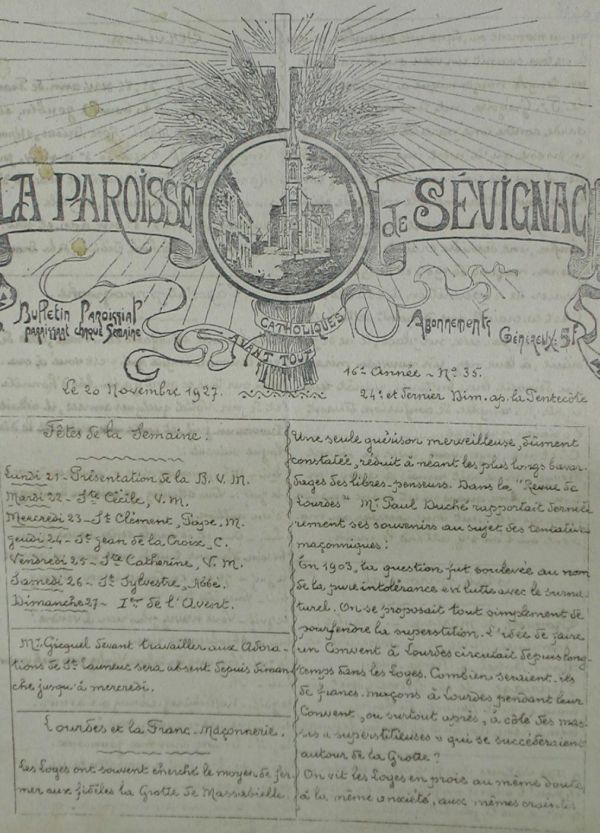 LA PAROISSE de SÉVIGNAC
Bulletin Paroissial
paraissant chaque Semaine
CATHOLIQUES
AVANT TOUT
Abonnements
Généreux: 5f
16e Année - No 35.
Le 20 Novembre 1927.
24e et dernier Dim. ap. la Pentecôte
Fêtes de la Semaine.
Lundi 21 - Présentation de la B. V. M.
Mardi 22 - Ste Cécile, V. M.
Mercredi 23 - St Clément, Pape, M.
Jeudi 24 - St Jean de la Croix, C.
Vendredi 25 - Ste Catherine, V. M.
Samedi 26 - St Sylvestre, Abbé.
Dimanche 27 - Ier de l'Avent.
Mr. Gicquel devant travailler aux Adora-
tions de St Launeuc sera absent depuis diman-
che jusqu'à mercredi.
Lourdes et la Franc-Maçonnerie.
Les Loges ont souvent cherché le moyen de fer-
mer aux fidèles la Grotte de Massabielle.
Une seule guérison merveilleuse, dûment
constatée, réduit à néant les plus longs bavar-
dages des libres-penseurs. Dans la "Revue de
Lourdes" Mr. Paul Duché rapportait derniè-
rement ses souvenirs au sujet des tentatives
maçonniques:
En 1903, la question fut soulevée au nom
de la pure intolérance en lutte avec le surna-
turel. On se proposait tout simplement de
pourfendre la superstition. L'idée de faire
un Convent à Lourdes circulait depuis long-
temps dans les Loges. Combien seraient-ils
de francs-maçons à Lourdes pendant leur
Convent, ou surtout après, à côté des mas-
ses « superstitieuses » qui se succéderaient
autour de la Grotte?
On vit les Loges en proie au même doute,
à la même anxiété, aux mêmes craintes